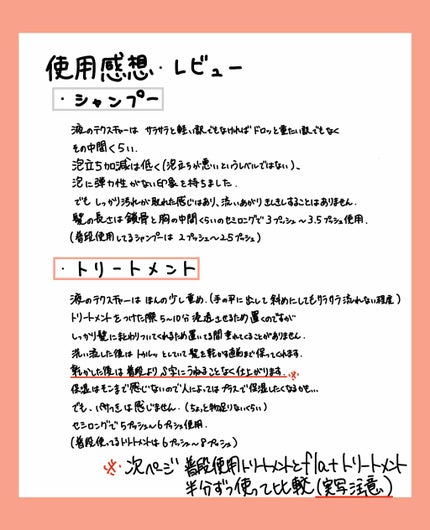 使用感想・レビュー
・シャンプー
液のテクスチャーは サラサラと軽い訳でもなければドロッと重たい訳でもなく
その中間くらい.
泡立ち加減は低く(泡立ちが悪いというレベルではない)、
泡に弾力性がない印象を持ちました.
でも しっかり汚れが取れた感じはあり、洗いあがりきしきしすることはありません.
髪の長さは鎖骨と胸の中間くらいのセミロングで3プッシュ〜3.5プッシュ使用.
(普段使用してるシャンプーは 2プッシュ〜2.5プッシュ)
・トリートメント
液のテクスチャーは ほんの少し重め.(手の平に出して斜めにしてもサラサラ流れない程度)
トリートメントをつけた際5~10分浸透させるため置くのですが
しっかり髪にまとわりついてくれるため置いてる間垂れてくることがありません.
洗い流した後は トゥルッとしていて髪を乾かす直前まで保ってくれます.
乾かした後は普段よりS字にうねることなく仕上がります.※
保湿はそこまで感じないので人によってはプラスで保湿したくなるかも...
でも、パサつきは感じません.(ちょっと物足りないくらい)
セミロングで5プッシュ〜6プッシュ使用.
(普段使ってるトリートメントは6プッシュ〜8プッシュ)
※・次ページ 普段使用トリートメントとflatトリートメント
半分ずつ使って比較(実写注意)